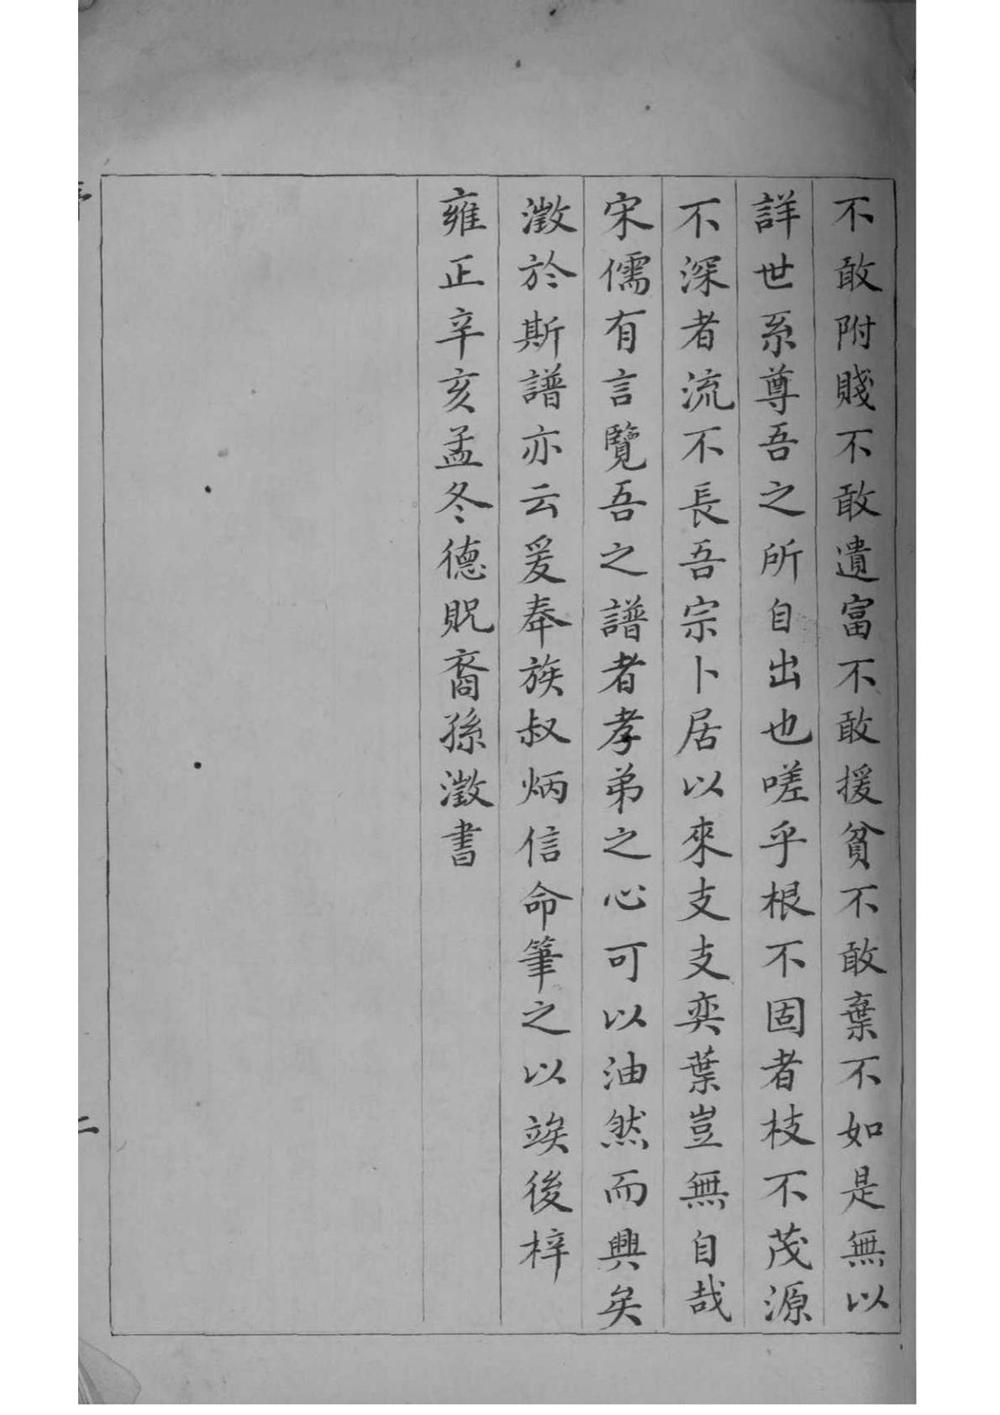 不敢附賤不敢遺富不敢援貧不敢棄不如是無以
詳世系尊吾之所自出也嗟乎根不固者枝不茂源
不深者流不長吾宗卜居以來支支奕葉豈無自哉
宋儒有言覽吾之譜者孝弟之心可以油然而興矣
澂於斯譜亦云爰奉族叔炳信命筆之以竢後梓
雍正辛亥孟冬德貺裔孫澂書
二